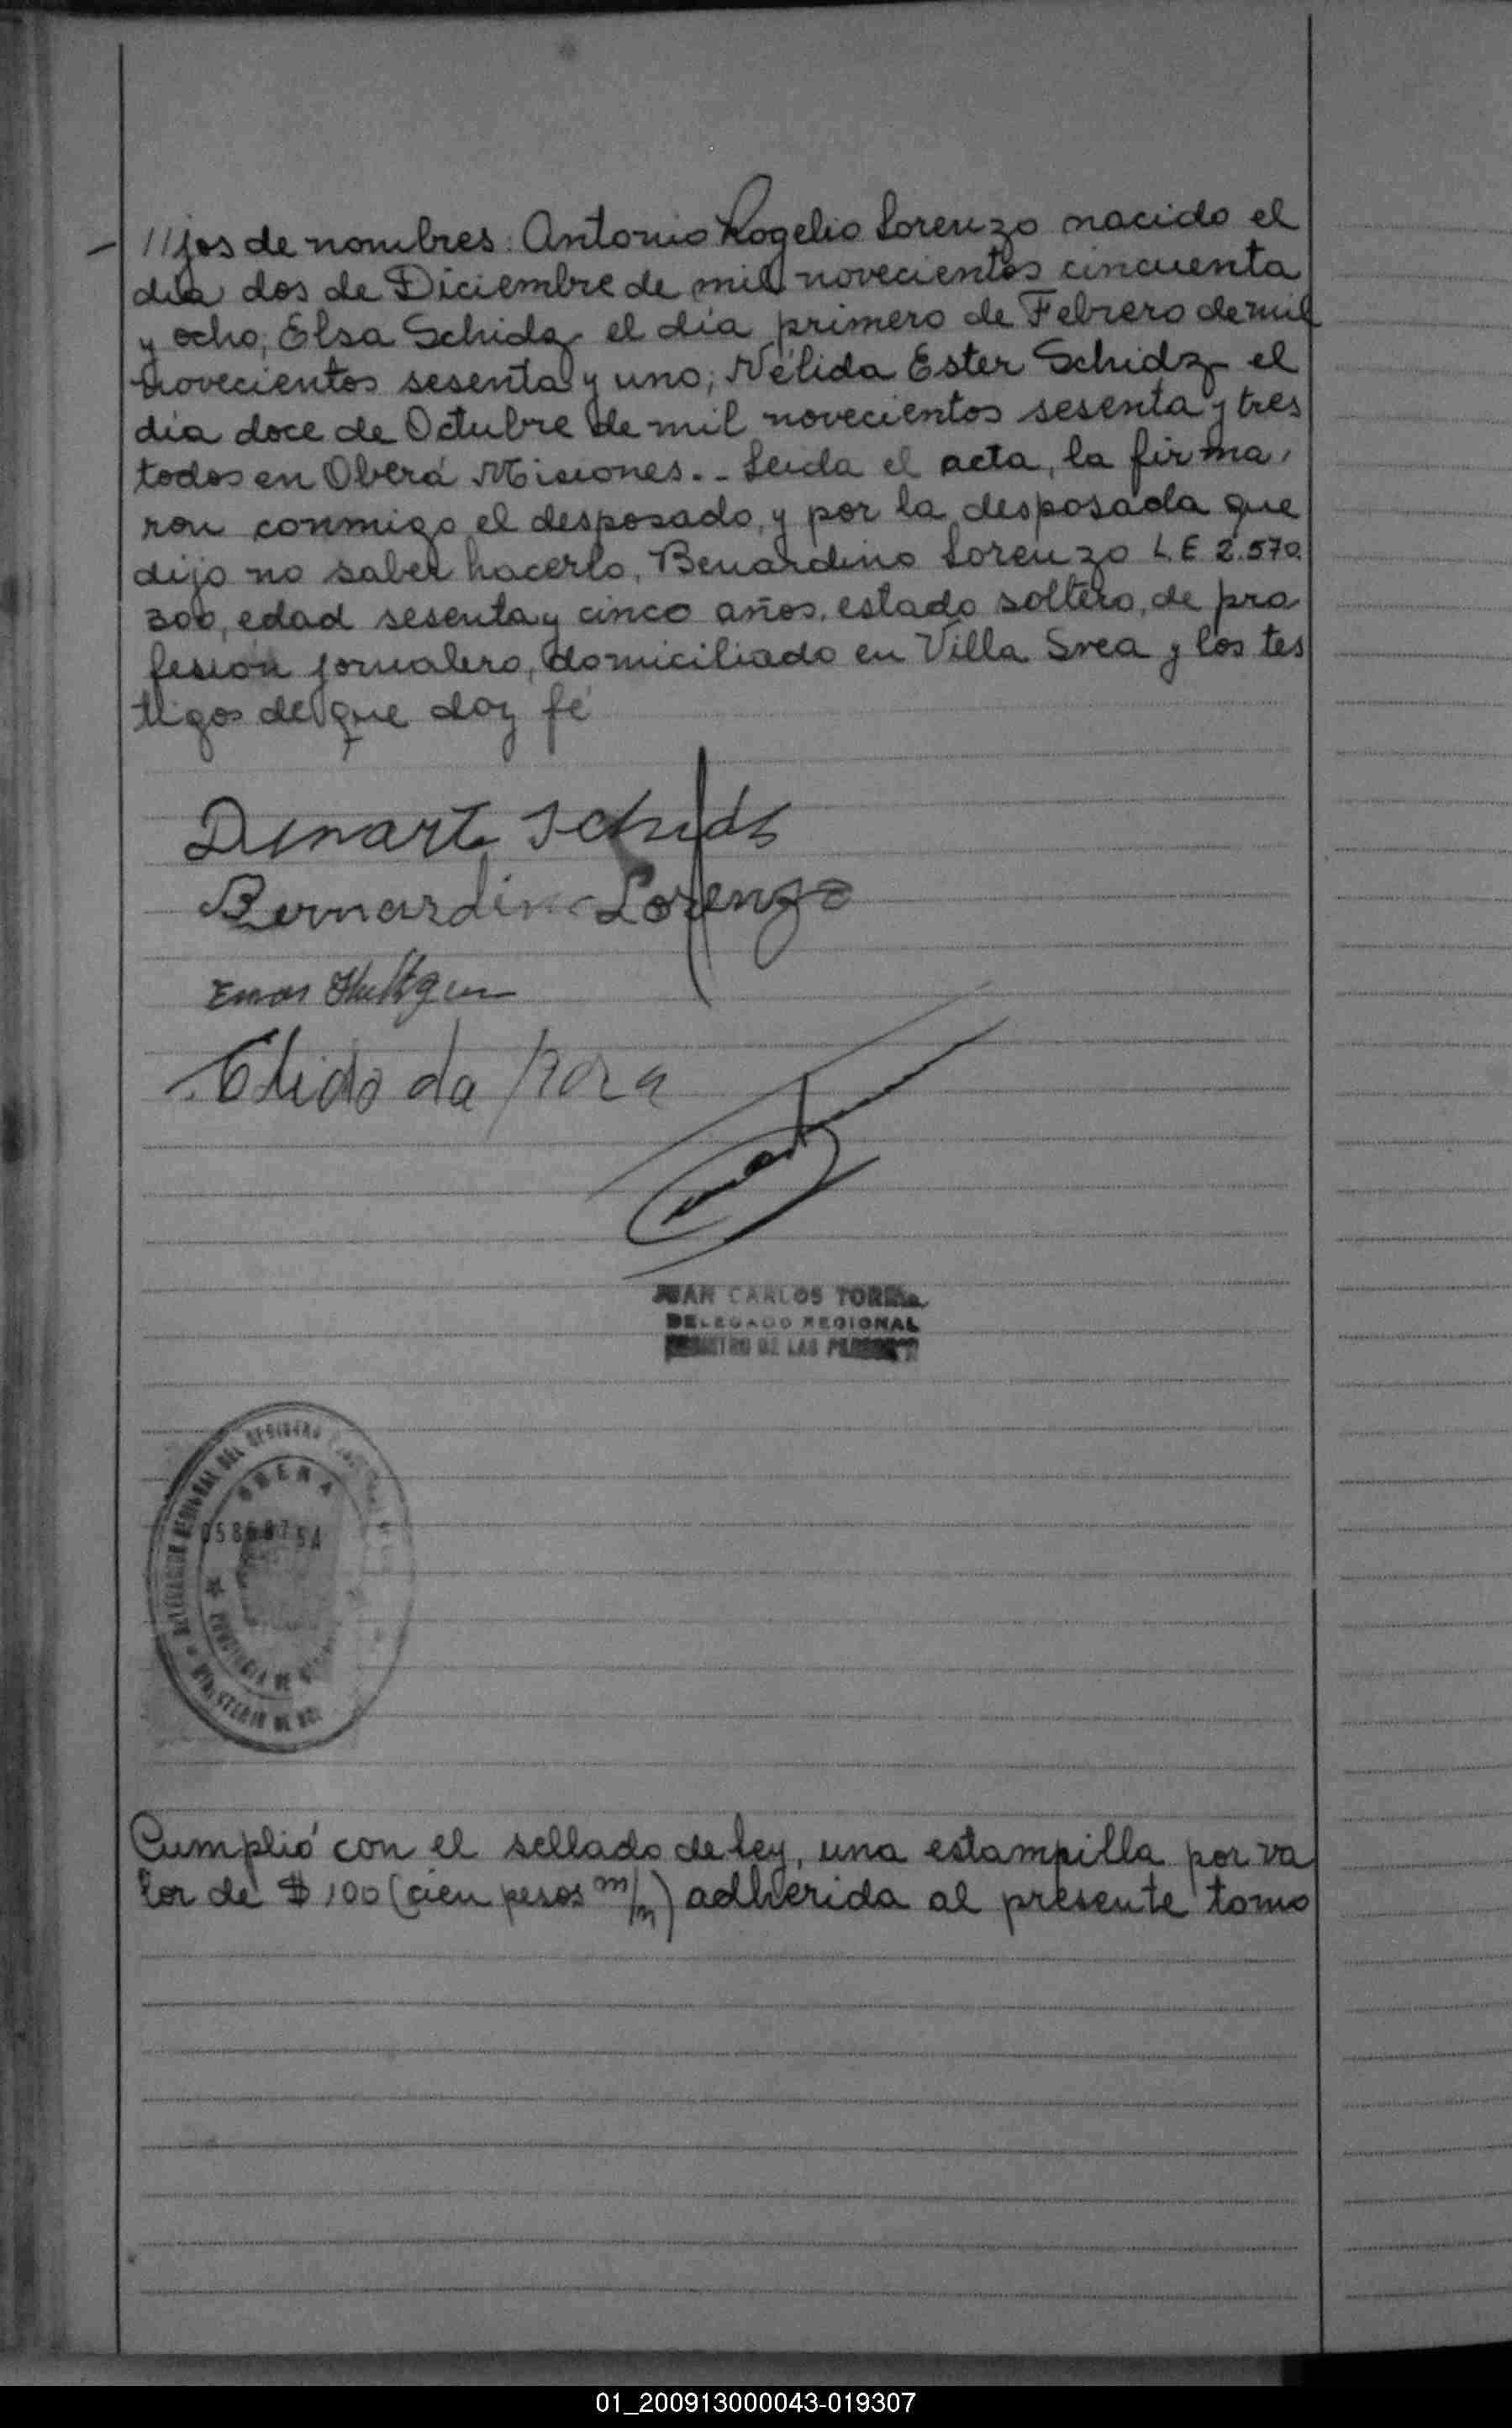 //jos de nombres: Antonio Rogelio Lorenzo nacido el
día dos de Diciembre de mil novecientos cincuenta
y ocho; Elsa Schidz el día primero de Febrero de mil
novecientos sesenta y uno; Nélida Ester Schidz el
día doce de Octubre de mil novecientos sesenta y tres
todos en Oberá Misiones.- Leida el acta, la firma,
ron conmigo el desposado, y por la desposada que
dijo no saber hacerlo, Benardino Lorenzo L.E 2.570.
300, edad sesenta y cinco años, estado soltero, de pro
fesion jornalero, domiciliado en Villa Svea y los tes
tigos de que doy fé
Dinarte Schids
Bernardino Lorenzo
Elido da Roza
JUAN CARLOS
DELEGADO REGIONAL
REGISTRO DE LAS PERSONAS
DELEGACION REGIONAL DEL REGISTRO
OBERA
PROVINCIA DE
MINISTERIO DE
Cumplió con el sellado de ley, una estampilla por va
lor de $ 100 (cien pesos m/n) adherida al presente tomo
01_200913000043-019307